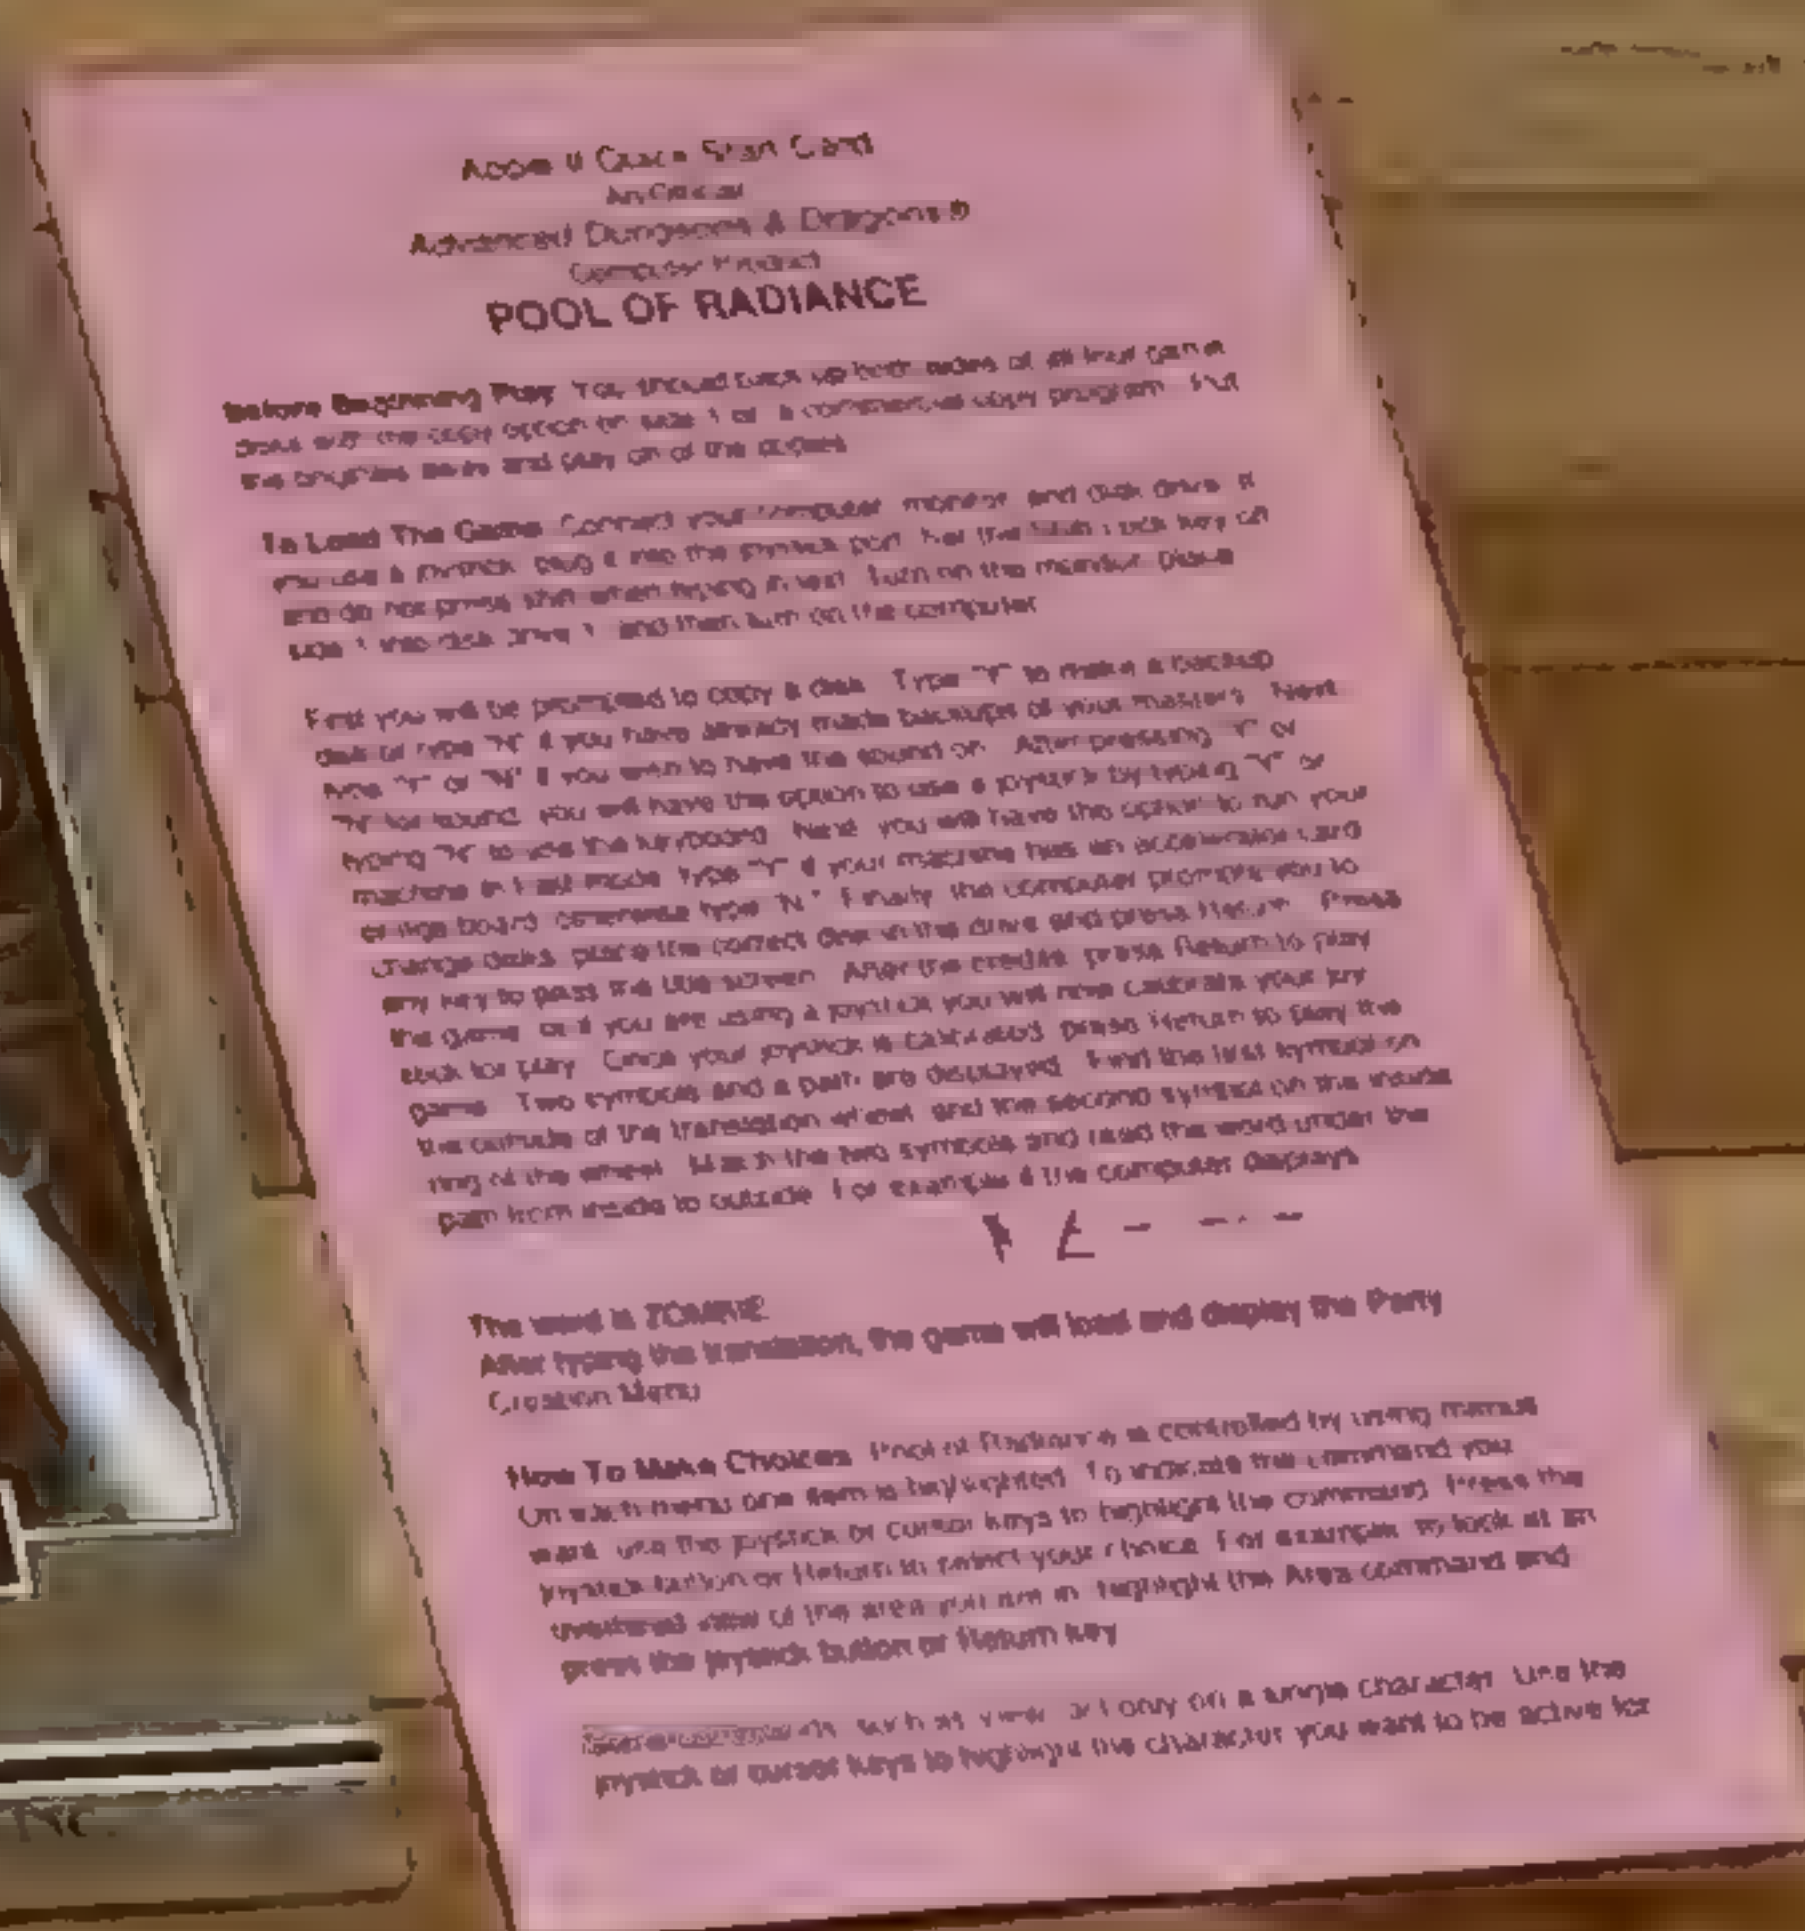 Apple II Quick Start Card
An Official
Advanced Dungeons & Dragons®
Computer Product
POOL OF RADIANCE
Before Beginning Play You should back up both sides of all four game
disks with the copy option on side 1 or a commercial copy program Put
the originals away and play on of the copies
To Load The Game Connect your computer monitor and disk drive If
you use a joystick plug it into the joystick port Set the Lock key off
and do not press shift when typing in text Turn on the monitor place
side 1 into disk drive 1 and then turn on the computer
First you will be prompted to copy a disk Type "Y" to make a backup
disk or type "N" if you have already made backups of your masters Next
type "Y" or "N" if you wish to have the sound on After pressing "Y" or
"N" for sound you will have the option to use a joystick by typing "Y" or
typing "N" to use the keyboard Next you will have the option to run your
machine in Fast mode Type "Y" if your machine has an accelerator card
board otherwise type "N" Finally the computer prompts you to
change disks place the correct one in the drive and press Return Press
any key to pass the title screen After the credits press Return to play
the game or if you are using a joystick you will now calibrate your joy
stick for play Once your joystick is calibrated press Return to play the
game Two symbols and a path are displayed Find the first symbol on
the outside of the translation wheel and the second symbol on the inside
ring of the wheel Match the two symbols and read the word under the
path from inside to outside For example if the computer displays
The word is ZOMBIE
After typing the translation, the game will load and display the Party
Creation Menu
How To Make Choices Pool of Radiance is controlled by using menus
On each menu one item is highlighted To indicate the command you
want use the joystick or cursor keys to highlight the command Press the
joystick button or Return to select your choice For example to look at an
overhead view of the area you are in highlight the Area command and
press the joystick button or Return key
Some commands such as view act only on a single character Use the
joystick or cursor keys to highlight the character you want to be active for